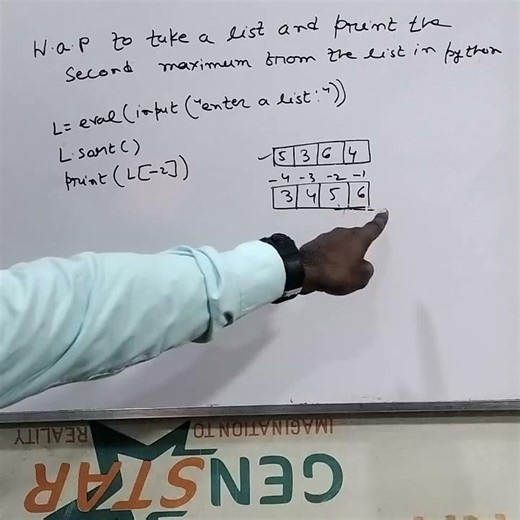 W.a.p to take a list and print the
second maximum from the list in python
L=eval(input("enter a list:"))
L.sort()
print(L[-2])
5 3 6 4
-4 -3 -2 -1
3 4 5 6
IMAGINATION TO REALITY
GENSTAR